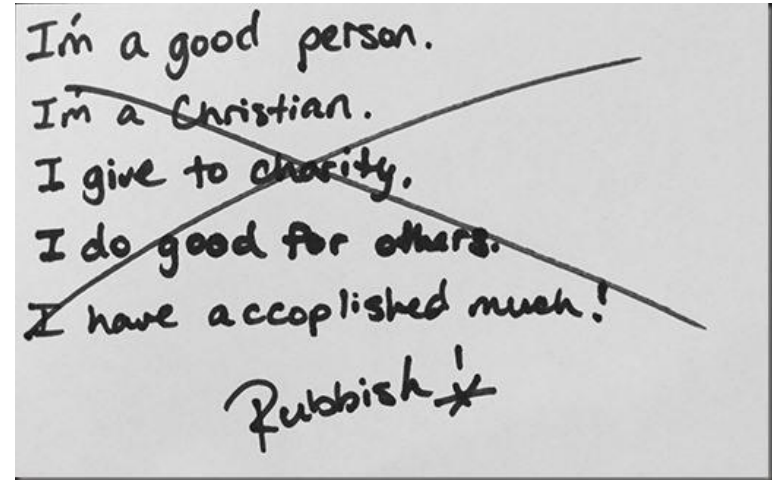 I'm a good person.
I'm a Christian.
I give to charity.
I do good for others.
I have accoplished much!
Rubbish!